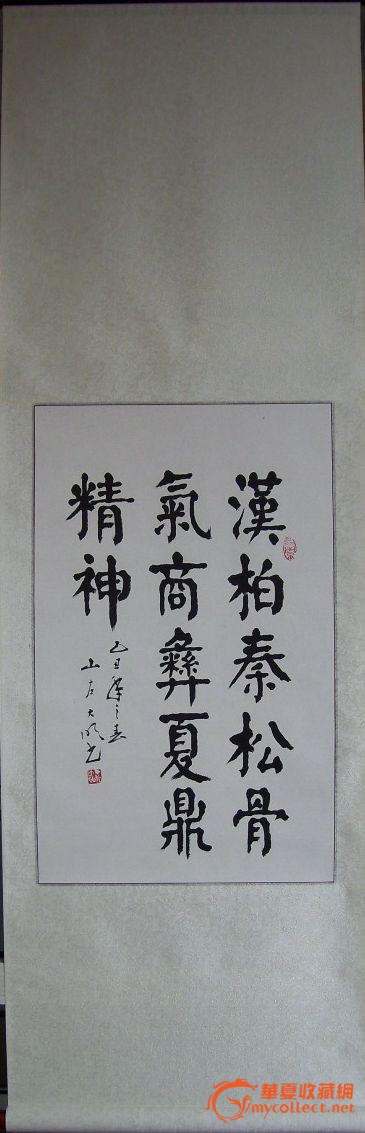 漢柏秦松骨
氣商彝夏鼎
精神
乙丑年之春
華夏收藏網
mycollect.net